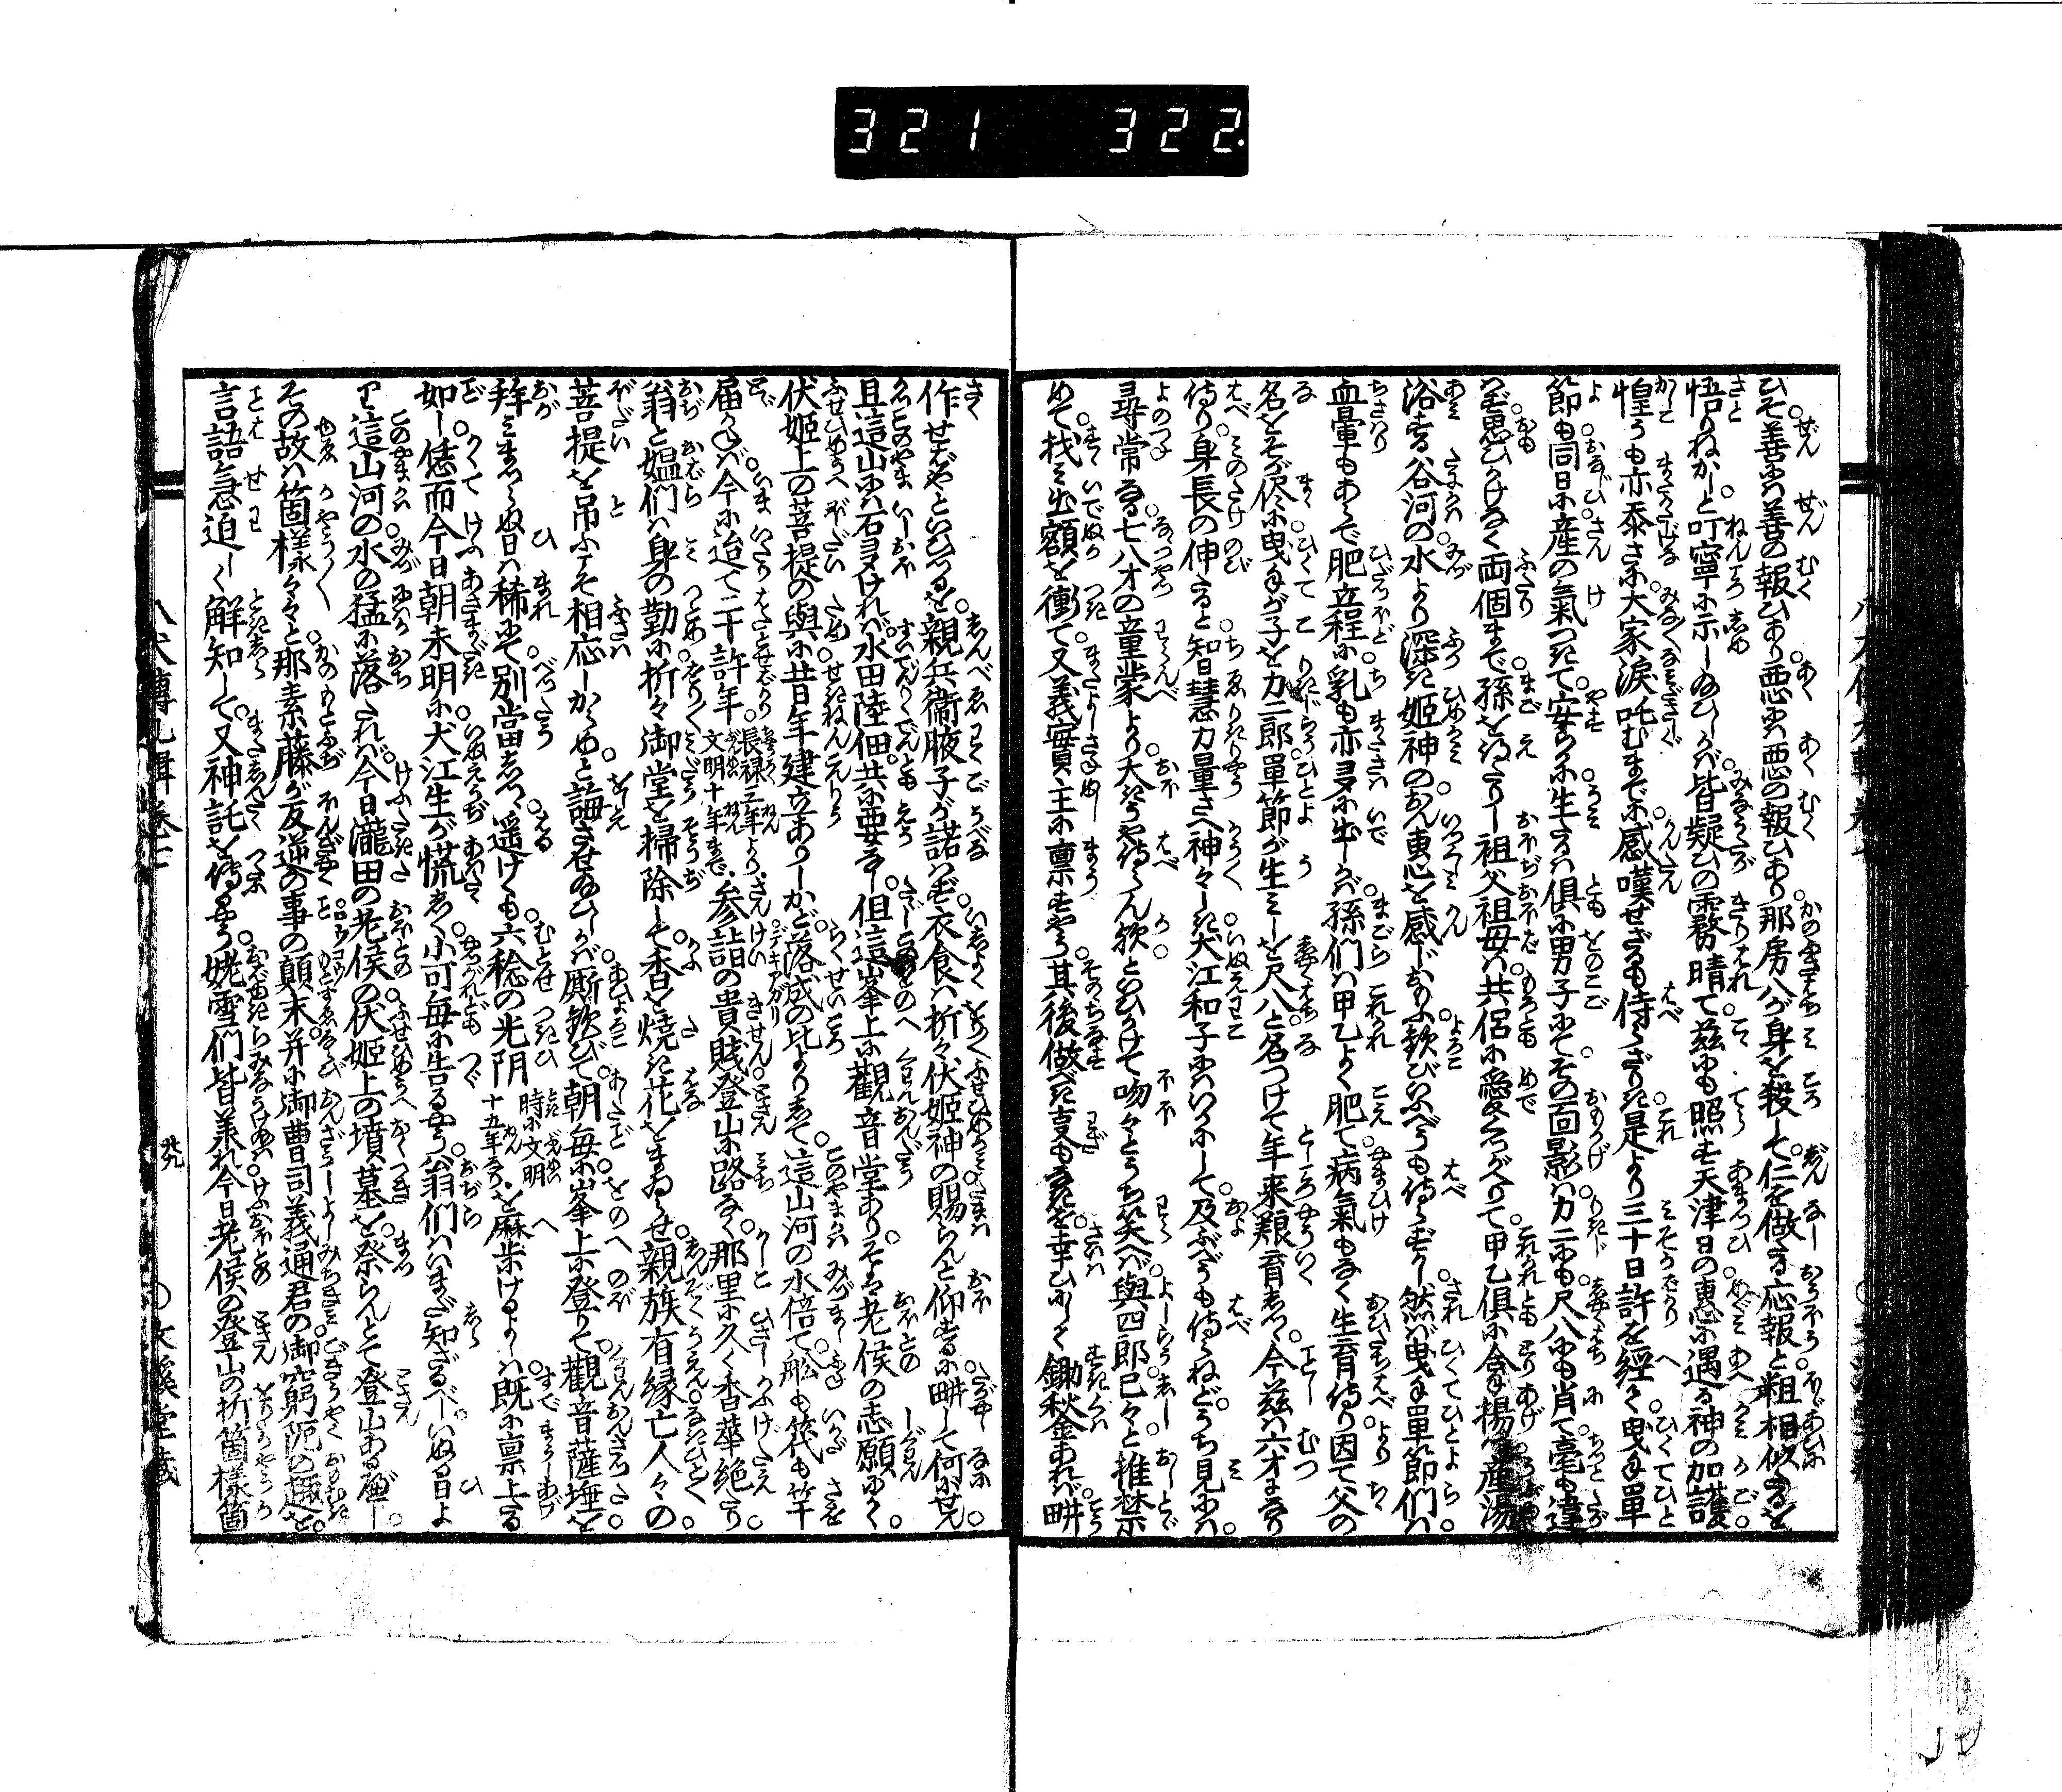 321 322
ひそ善には善の報ひあり悪には悪の報ひあり那房八が身を殺して仁を做る応報と粗相似たるを
悟りねかしと叮寧に示し給ひしかば皆疑ひの霧晴て茲にも照す天津日の恵に遇る神の加護
惶うも亦忝さに大家涙吐むまでに感嘆せざるも侍らざりき是より三十日許を経て曳手單
節も同日に産の氣つきて安らかに生るは倶に男子にてその面影は力二にも尺八にも肖て毫も違
はず思ひかけなく両個まで孫を得たりし祖父祖母は共侶に愛くつがへりて甲乙倶に合手揚げ産湯
浴する谷河の水より深き姫神のおん恵を感じまつりに歓びいふべうも侍らずかし然ば曳手單節們は
血暈もあらで肥立程に乳も亦多に出しかば孫們は甲乙よく肥て病氣もなく生育侍り因て父の
名をそが侭に曳手が子を力二郎單節が生ミしを尺八と名つけて年来艱育しつ今茲は六才になり
侍り身長の伸たると知慧力量さへ神々しき犬江和子にはいかにして及ぶべうも侍らねどうち見には
尋常なる七八才の童蒙より大きうや侍らん歟といひかけて吻々とうち笑へば與四郎已々と推禁
めて找ミ出額を衝て又義實主に禀すやう其後做すべき事もなきを幸ひにしく鋤秋金あれば畊
作せばやといひつるを親兵衞腋子が諾はず衣食は折々伏姫神の賜らんと仰するに畊して何にせん
且這山には石多ければ水田陸佃共に要なし但這峯上に觀音堂ありそは老侯の志願にて
伏姫上の菩提の與に昔年建立ありしかど落成の比よりして這山河の水倍て舩も筏も竿
届かねば今に迨て二十許年長禄三年より文明十年まで参詣の貴賤登山に路なく那里に久く香華絶たり
翁と媼們は身の勤に折々御堂を掃除して香を焼き花をまゐらせ親族有縁亡人々の
菩提を吊ふこそ相応しからめと誨させ給ひしかば厮歓びて朝毎に峯上に登りて觀音薩埵を
拜ミまゐらぬ日は稀にて別當しつ遥けくも六稔の光阴時に文明十五年なりを麻歩けるよしは既に禀上る
如し恁而今日朝未明に犬江生が慌しく小可毎に告るやう翁們はいまだ知ざるべしいぬる日よ
り這山河の水の猛に落たれば今日瀧田の老侯の伏姫上の墳墓を祭らんとて登山あるべし
その故は箇様々々と那素藤が反逆の事の顛末并に御曹司義通君の御窮阨の趣を
言語急迫しく解知して又神託を傳るやう姥雪們皆兼れ今日老侯の登山の折箇様箇
八犬傳九輯卷之
廿九
文溪堂藏